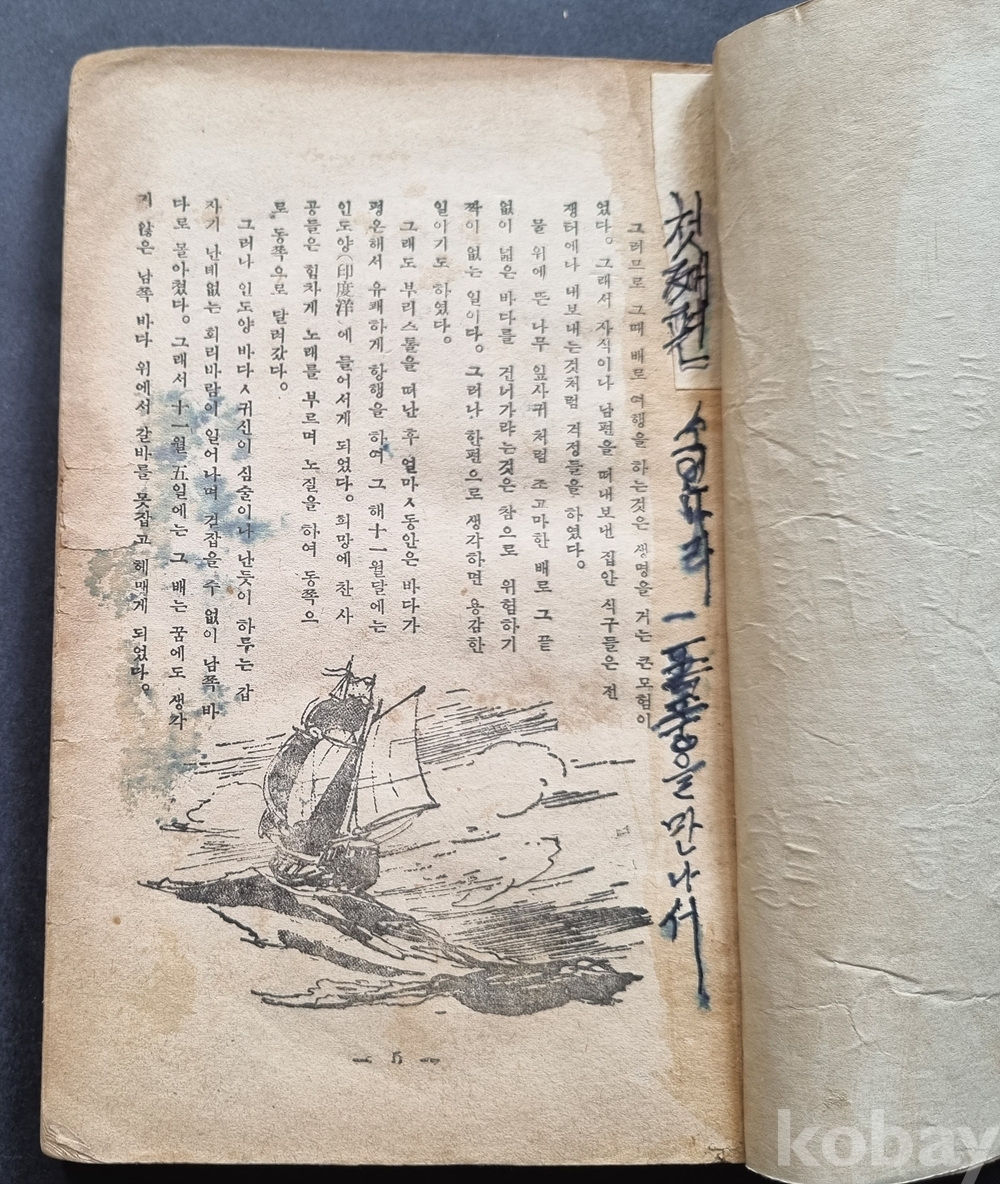 첫째편 소인나라 一 폭풍을만나서
그러므로 그때 배로 여행을 하는것은 생명을 거는 큰 모험이
었다。그래서 자식이나 남편을 떠내보낸 집안 식구들은 전
쟁터에나 내보내는것처럼 걱정들을 하였다。
물 위에 뜬 나무 잎사귀 처럼 조고마한 배로 그 끝
없이 넓은 바다를 건너가라는것은 참으로 위험하기
짝이 없는 일이다。그러나 한편으로 생각하면 용감한
일이기도 하였다。
그래도 부리스톨을 떠난 후 얼마ㅅ동안은 바다가
평온해서 유쾌하게 항행을 하여 그 해 十一월달에는
인도양(印度洋)에 들어서게 되었다。희망에 찬 사
공들은 힘차게 노래를 부르며 노질을 하여 동쪽으
로 동쪽으로 달려갔다。
그러나 인도양 바다ㅅ귀신이 심술이나 난듯이 하루는 갑
자기 난데없는 회리바람이 일어나며 걷잡을 수 없이 남쪽 바
다로 몰아쳤다。그래서 十一월 五일에는 그 배는 꿈에도 생각
지 않은 남쪽 바다 위에서 갈바를 못잡고 헤매게 되었다。
— 5 —
kobay